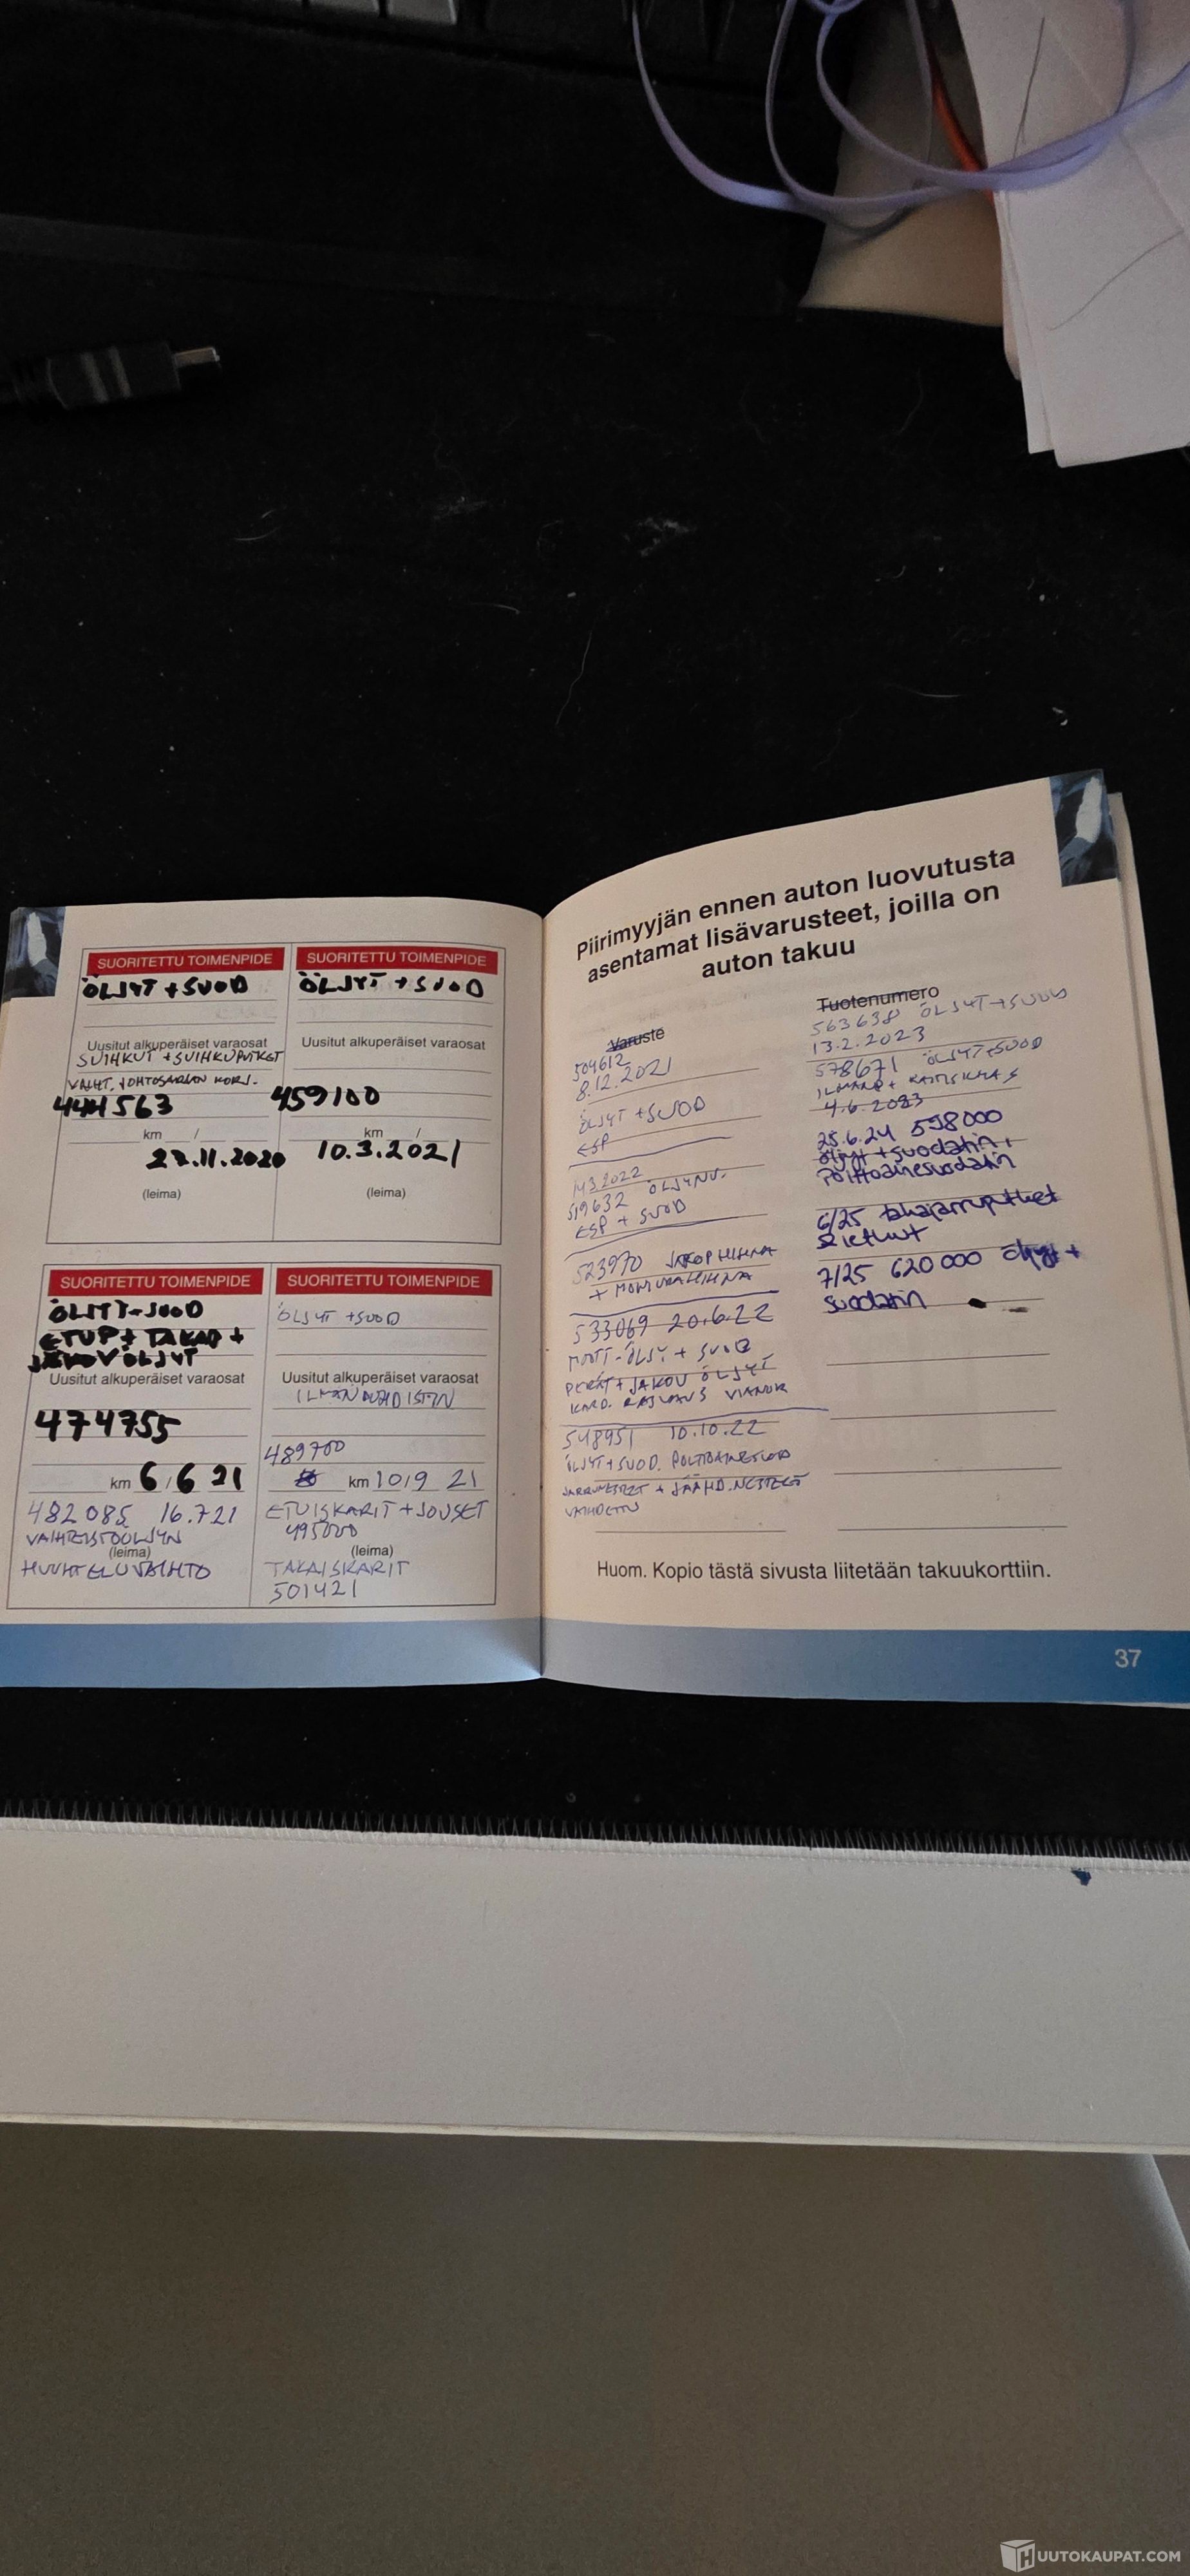 SUORITETTU TOIMENPIDE
ÖLJYT + SUOD
Uusitut alkuperäiset varaosat
SUIHKUT + SUIHKUPUTKET
VAIHT. JOHTOSARJAN KORJ.
444563
km /
27.11.2020
(leima)
SUORITETTU TOIMENPIDE
ÖLJYT + SUOD
Uusitut alkuperäiset varaosat
459100
km /
10.3.2021
(leima)
SUORITETTU TOIMENPIDE
ÖLJYT+SUOD
ETUP+ TAKAP +
JAKOV ÖLJYT
Uusitut alkuperäiset varaosat
474755
km 6/6 21
482085 16.721
VAIHTEISTOÖLJYN
(leima)
HUUHTELUVAIHTO
SUORITETTU TOIMENPIDE
ÖLJYT +SUOD
Uusitut alkuperäiset varaosat
ILMANPUHDISTIN
489700
km 10/9 21
ETUISKARIT + JOUSET
495000
(leima)
TAKAISKARIT
501421
Piirimyyjän ennen auton luovutusta
asentamat lisävarusteet, joilla on
auton takuu
Varuste
504612
8.12.2021
ÖLJYT + SUOD
ESP
14.3.2022
519632 ÖLJYNV.
ESP + SUOD
523970 JAKOPHIHNA
+ MONIURAHIHNA
533069 20.6.22
MOOTT-ÖLJY. + SUOD
PERÄT + JAKOV ÖLJYT
KARD. RASVAUS
548951 10.10.22
ÖLJYT+SUOD. POLTTOAINESUOD
JARRUNESTEET + JÄÄHD.NESTEET
VAIHDETTU
Tuotenumero
563638 ÖLJYT+SUOD
13.2.2023
578671 ÖLJYT+SUOD
ILMANP + RAITISILMAS
4.6.2023
25.6.24 598000
öljyt + suodatin,
Polttoainesuodatin
6/25 takajarruputket
& letkut
7/25 620 000 öljyt +
suodatin
Huom. Kopio tästä sivusta liitetään takuukorttiin.
37
HUUTOKAUPAT.COM